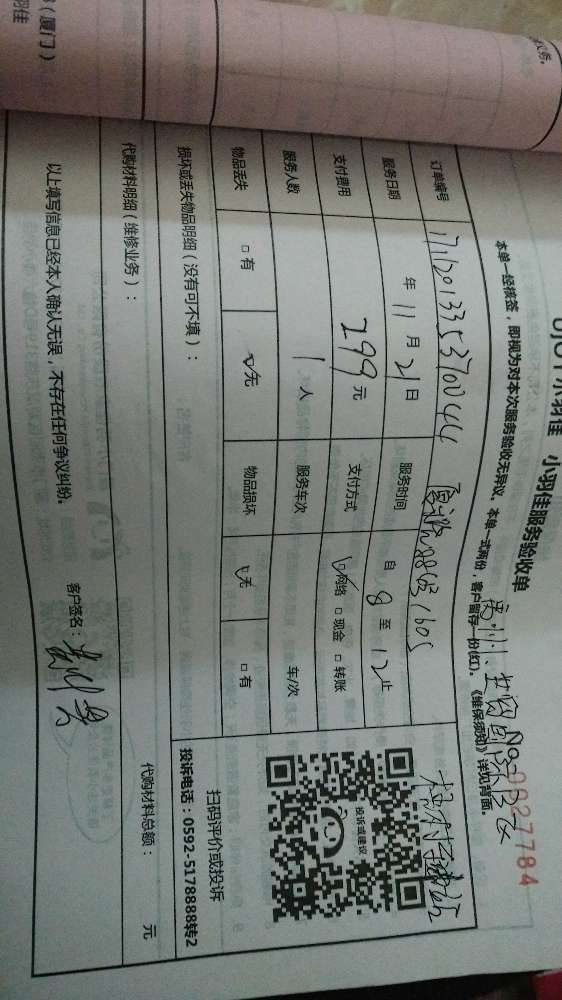 小羽佳 小羽佳服务验收单
No 0027784
本单一经核签，即视为对本次服务验收无异议。本单一式两份，客户留存一份(红)。《维保须知》详见背面。
订单编号 17112013353700444
服务日期 年 11 月 21 日 服务时间 自 8 至 12 止
支付费用 299 元 支付方式 ☑网络 □现金 □转账
服务人数 1 人 服务车次 车/次
物品丢失 □有 ☑无 物品损坏 ☑无 □有
损坏或丢失物品明细（没有可不填）：
代购材料明细（维修业务）： 代购材料总额： 元
以上填写信息已经本人确认无误，不存在任何争议纠纷。
客户签名：
投诉或建议
扫码评价或投诉
投诉电话：0592-5178888转2
（厦门）
羽佳